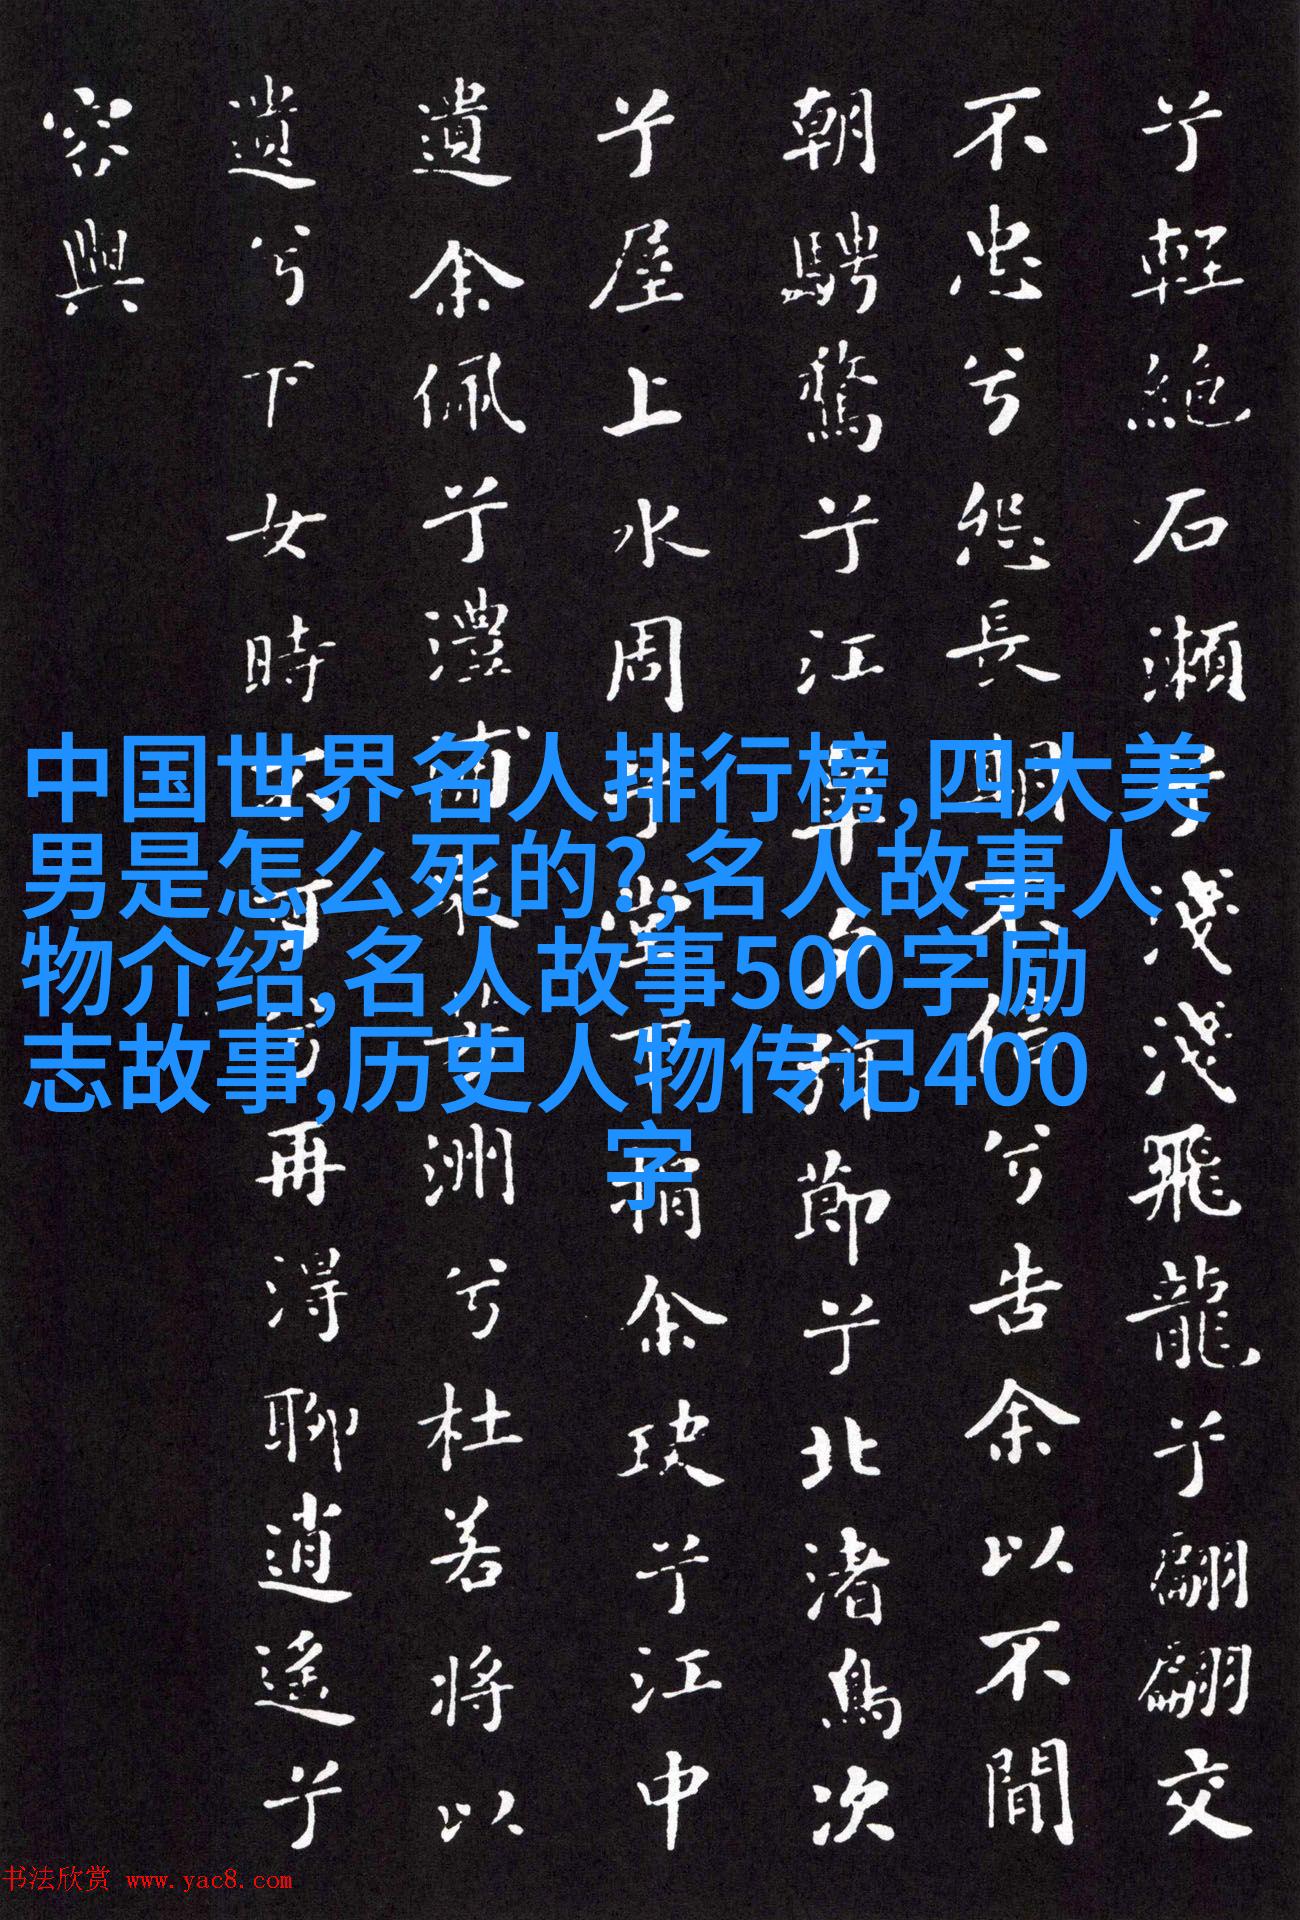 兮輕絕石瀨兮淺淺飛龍兮翩翩交
不忠兮怨長期不信兮告余以不間
朝騁騖兮江皋夕弭節兮北渚鳥次
兮屋上水周兮堂下捐余玦兮江中
遺余佩兮澧浦采芳洲兮杜若將以
遺兮下女時不可兮再得聊逍遙兮
容與
中国世界名人排行榜,四大美
男是怎么死的?,名人故事人
物介绍,名人故事500字励
志故事,历史人物传记400
字
书法欣赏 www.yac8.com